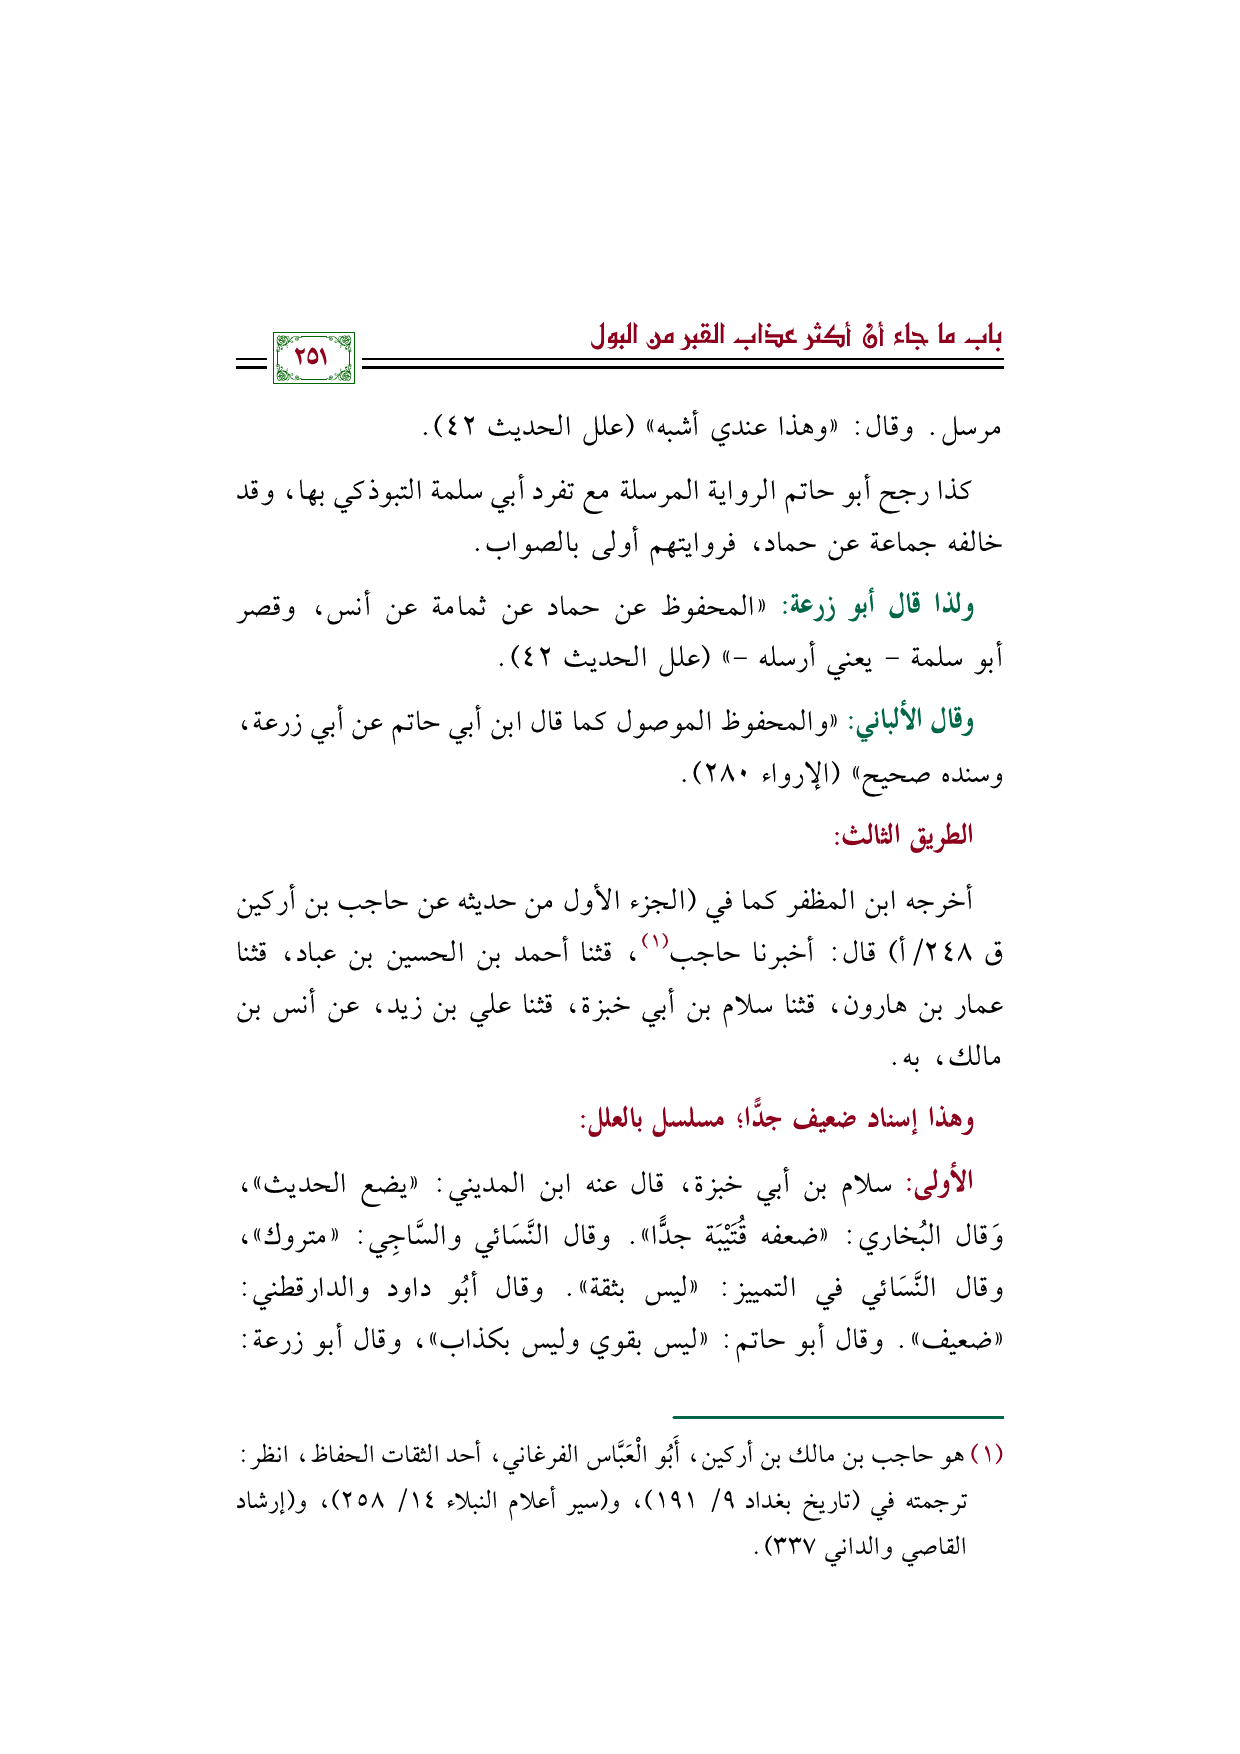 باب ما جاء أن أكثر عذاب القبر من البول
٢٥١
مرسل. وقال: «وهذا عندي أشبه» (علل الحديث ٤٢).
كذا رجح أبو حاتم الرواية المرسلة مع تفرد أبي سلمة التبوذكي بها، وقد
خالفه جماعة عن حماد، فروايتهم أولى بالصواب.
ولذا قال أبو زرعة: «المحفوظ عن حماد عن ثمامة عن أنس، وقصر
أبو سلمة – يعني أرسله –» (علل الحديث ٤٢).
وقال الألباني: «والمحفوظ الموصول كما قال ابن أبي حاتم عن أبي زرعة،
وسنده صحيح» (الإرواء ٢٨٠).
الطريق الثالث:
أخرجه ابن المظفر كما في (الجزء الأول من حديثه عن حاجب بن أركين
ق ٢٤٨/ أ) قال: أخبرنا حاجب(١)، قثنا أحمد بن الحسين بن عباد، قثنا
عمار بن هارون، قثنا سلام بن أبي خبزة، قثنا علي بن زيد، عن أنس بن
مالك، به.
وهذا إسناد ضعيف جدًّا؛ مسلسل بالعلل:
الأولى: سلام بن أبي خبزة، قال عنه ابن المديني: «يضع الحديث»،
وَقال البُخاري: «ضعفه قُتَيْبَة جدًّا». وقال النَّسَائي والسَّاجِي: «متروك»،
وقال النَّسَائي في التمييز: «ليس بثقة». وقال أبُو داود والدارقطني:
«ضعيف». وقال أبو حاتم: «ليس بقوي وليس بكذاب»، وقال أبو زرعة:
(١) هو حاجب بن مالك بن أركين، أَبُو الْعَبَّاس الفرغاني، أحد الثقات الحفاظ، انظر:
ترجمته في (تاريخ بغداد ٩/ ١٩١)، و(سير أعلام النبلاء ١٤/ ٢٥٨)، و(إرشاد
القاصي والداني ٣٣٧).